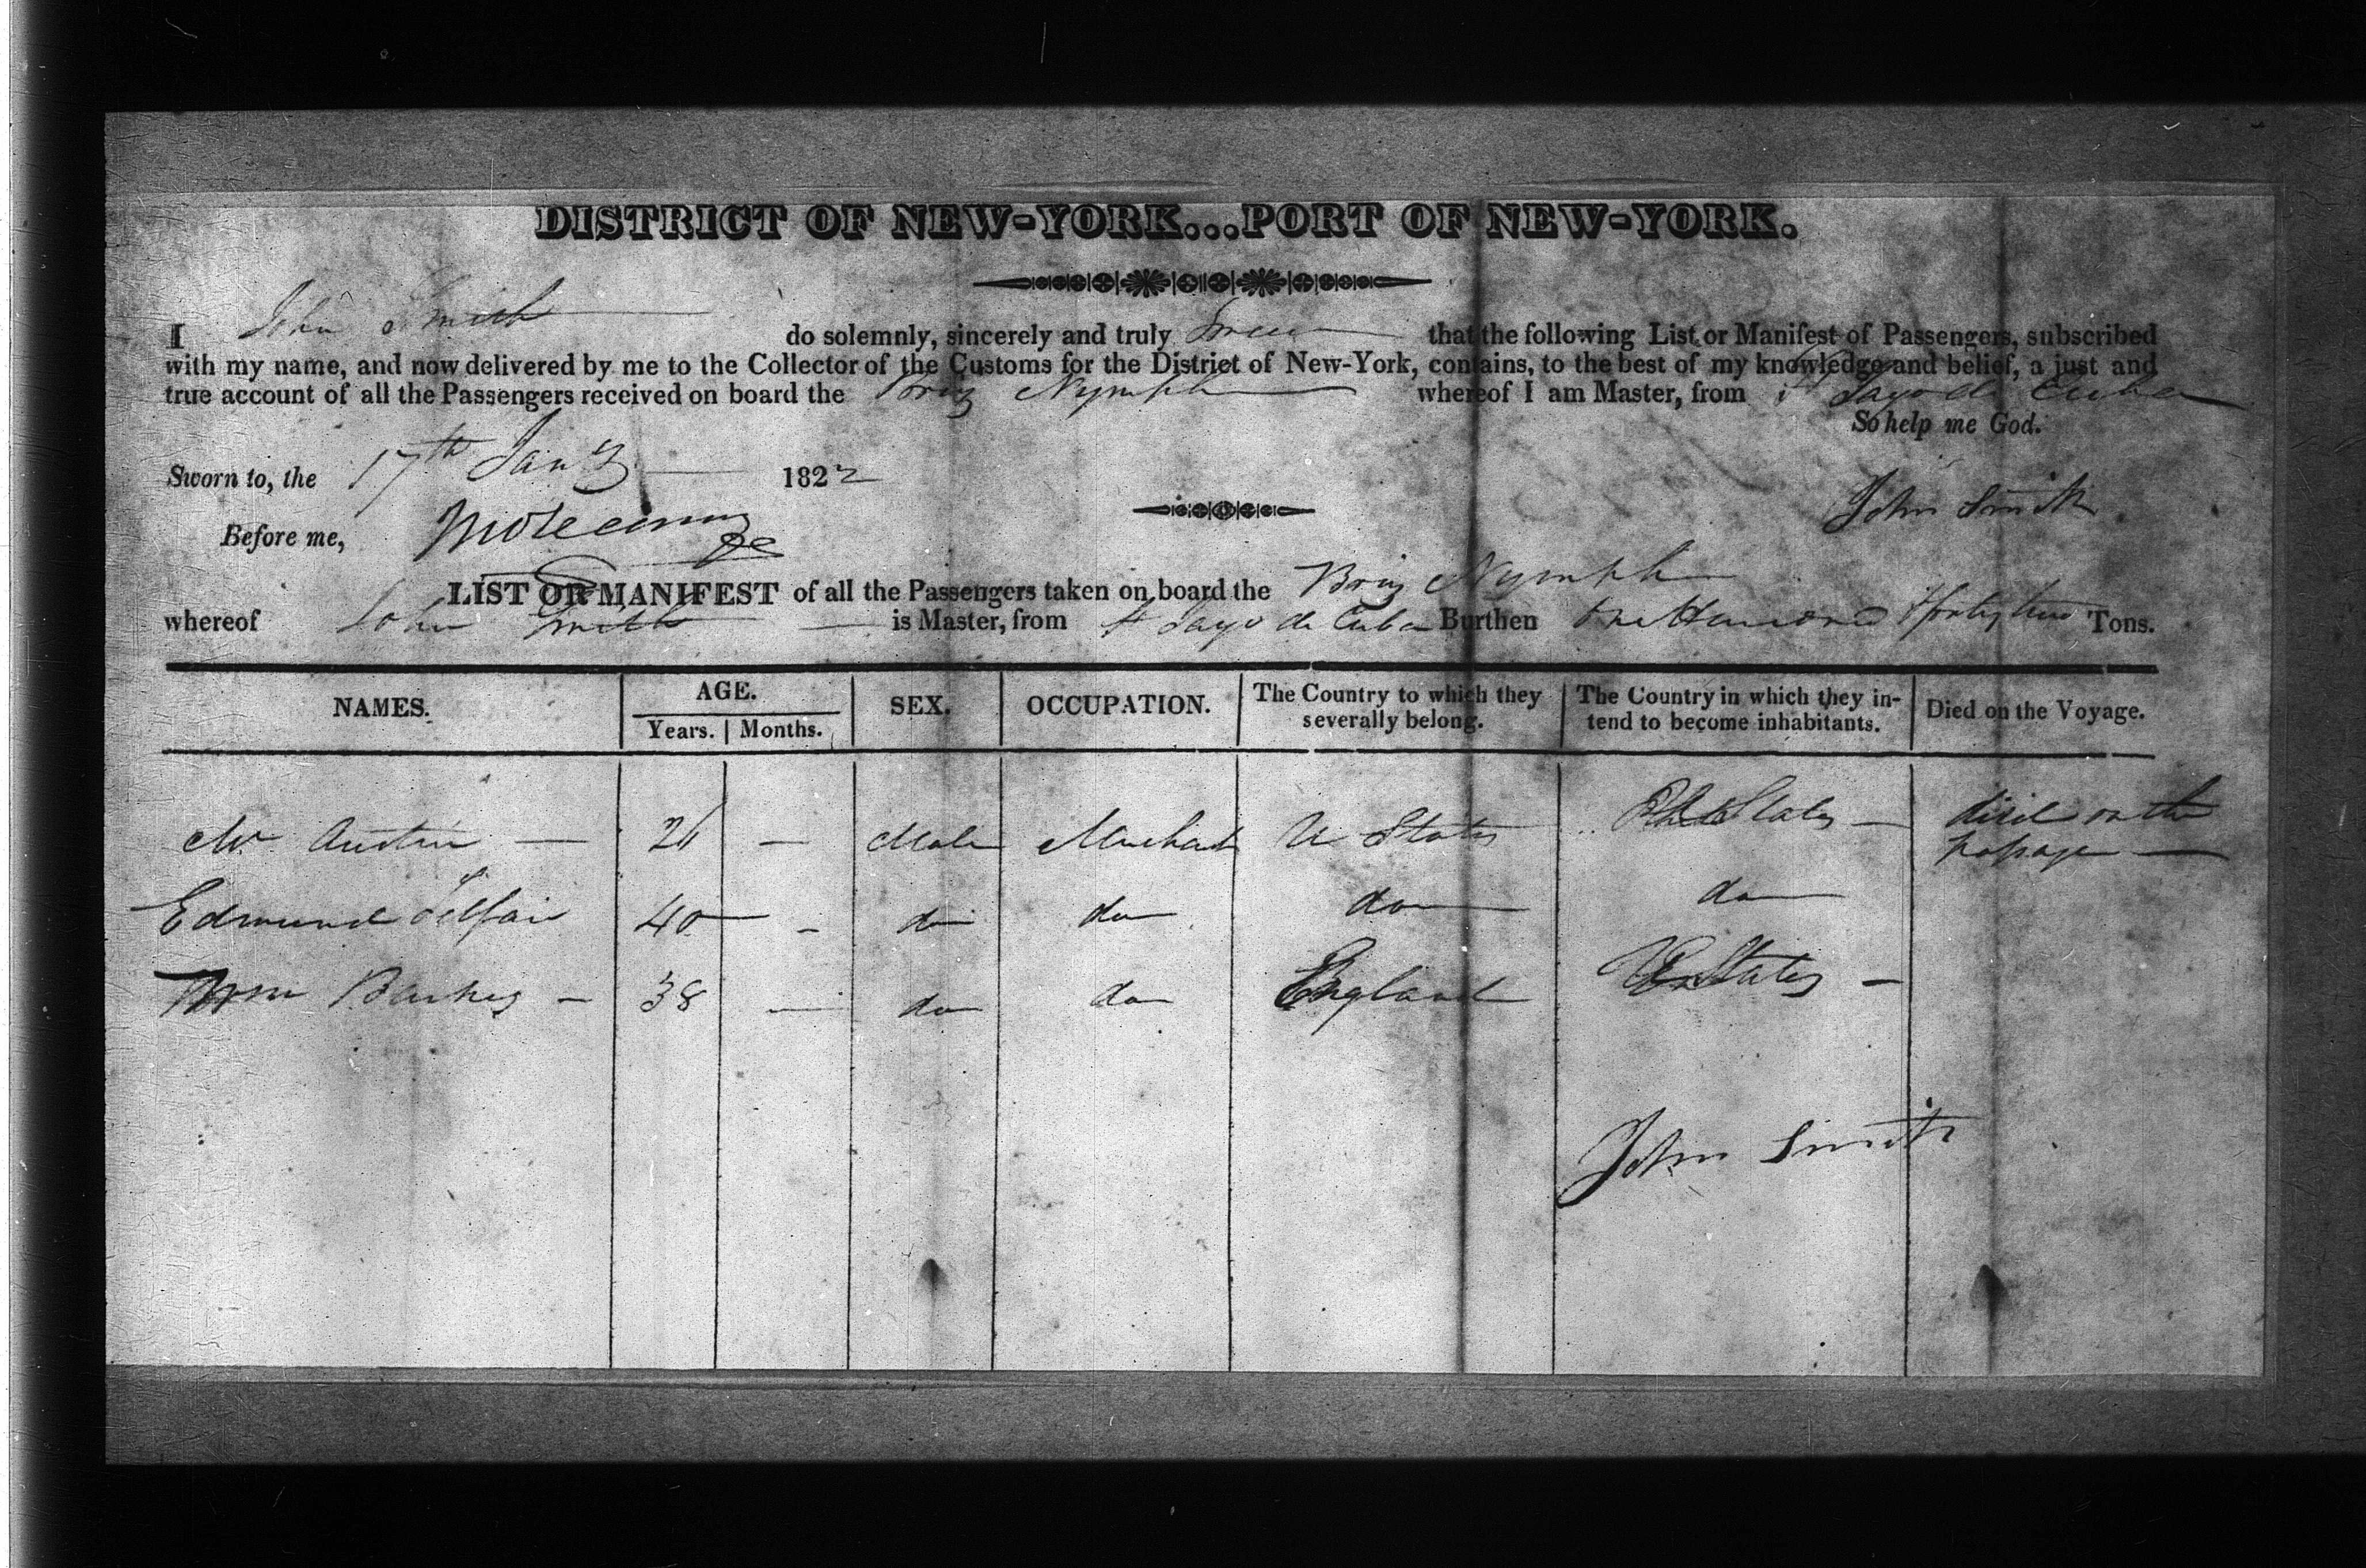 DISTRICT OF NEW-YORK...PORT OF NEW-YORK.
I John Smith do solemnly, sincerely and truly Swear that the following List or Manifest of Passengers, subscribed
with my name, and now delivered by me to the Collector of the Customs for the District of New-York, contains, to the best of my knowledge and belief, a just and
true account of all the Passengers received on board the Brig Nymph whereof I am Master, from St Jago de Cuba
So help me God.
Sworn to, the 17th Jany 1822
John Smith
Before me,
LIST OR MANIFEST of all the Passengers taken on board the Brig Nymph
whereof John Smith is Master, from St Jago de Cuba Burthen One Hundred & forty two Tons.
NAMES. AGE. SEX. OCCUPATION. The Country to which they severally belong. The Country in which they in- tend to become inhabitants. Died on the Voyage.
Years. Months.
Mr Austin — 26 — Male Merchant U States States — died on the passage —
Edmund Telfair 40 — do do do do
Wm 38 — do do England U States —
John Smith